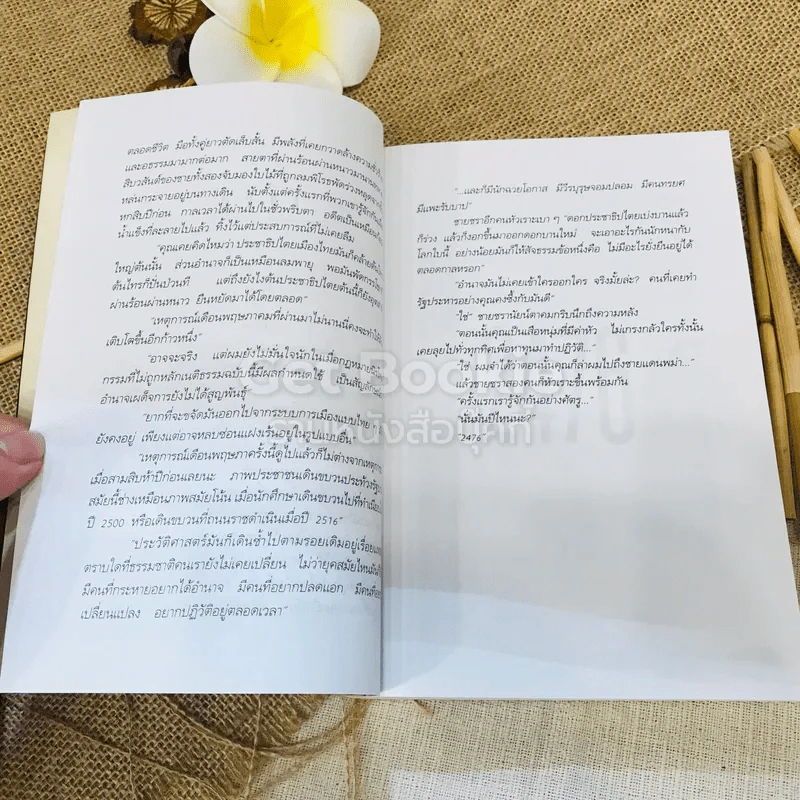 ตลอดชีวิต มือทั้งคู่ยาวตัดเล็บสั้น มีพลังที่เคยกวาดล้างความชั่ว
และอธรรมมามากต่อมาก สายตาที่ผ่านร้อนผ่านหนาวมานาน
สิบวสันต์ของชายทั้งสองจับมองใบไม้ที่ถูกลมพิโรธพัดร่วงหลุด
หล่นกระจายอยู่บนทางเดิน นับตั้งแต่ครั้งแรกที่พวกเขารู้จักกัน
หกสิบปีก่อน กาลเวลาได้ผ่านไปในชั่วพริบตา อดีตเป็นเหมือน
น้ำแข็งที่ละลายไปแล้ว ทิ้งไว้แต่ประสบการณ์ที่ไม่เคยลืม
"คุณเคยคิดไหมว่า ประชาธิปไตยเมืองไทยมันก็คล้ายต้น
ใหญ่ต้นนั้น ส่วนอำนาจก็เป็นเหมือนลมพายุ พอมันพัดกรรโชก
ต้นไทรก็ปั่นป่วนที แต่ถึงยังไงต้นประชาธิปไตยต้นนี้ก็ยัง
ผ่านร้อนผ่านหนาว ยืนหยัดมาได้โดยตลอด"
"เหตุการณ์เดือนพฤษภาคมที่ผ่านมาไม่นานนี้คงจะทำให้
เติบโตขึ้นอีกก้าวหนึ่ง"
"อาจจะจริง แต่ผมยังไม่มั่นใจนักในเมื่อกฎหมาย
กรรมที่ไม่ถูกหลักเนติธรรมฉบับนี้มีผลกำหนดใช้ เป็นสัญลักษณ์
อำนาจเผด็จการยังไม่ได้สูญพันธุ์"
"ยากที่จะขจัดมันออกไปจากระบบการเมืองแบบไทย ๆ
ยังคงอยู่ เพียงแต่อาจหลบซ่อนแฝงเร้นอยู่ในรูปแบบอื่น"
"เหตุการณ์เดือนพฤษภาครั้งนี้ดูไปแล้วก็ไม่ต่างจากเหตุการณ์
เมื่อสามสิบห้าปีก่อนเลยนะ ภาพประชาชนเดินขบวนประท้วงรัฐบาล
สมัยนี้ช่างเหมือนภาพสมัยโน้น เมื่อนักศึกษาเดินขบวนไปที่ทำเนียบ
ปี 2500 หรือเดินขบวนที่ถนนราชดำเนินเมื่อปี 2516"
"ประวัติศาสตร์มันก็เดินซ้ำไปตามรอยเดิมอยู่เรื่อย
ตราบใดที่ธรรมชาติคนเรายังไม่เคยเปลี่ยน ไม่ว่ายุคสมัยไหนมันก็
มีคนที่กระหายอยากได้อำนาจ มีคนที่อยากปลดแอก มีคนที่
เปลี่ยนแปลง อยากปฏิวัติอยู่ตลอดเวลา"
"...และก็มีนักฉวยโอกาส มีวีรบุรุษจอมปลอม มีคนทรยศ
มีแพะรับบาป"
ชายชราอีกคนหัวเราะเบา ๆ "ดอกประชาธิปไตยเบ่งบานแล้ว
ก็ร่วง แล้วก็งอกขึ้นมาออกดอกบานใหม่ จะเอาอะไรกันนักหนากับ
โลกใบนี้ อย่างน้อยมันก็ให้สัจธรรมข้อหนึ่งคือ ไม่มีอะไรยั่งยืนอยู่ได้
ตลอดกาลหรอก"
"อำนาจมันไม่เคยเข้าใครออกใคร จริงมั้ยล่ะ? คนที่เคยทำ
รัฐประหารอย่างคุณคงซึ้งกับมันดี"
"ใช่" ชายชรานัยน์ตาคมกริบนึกถึงความหลัง
"ตอนนั้นคุณเป็นเสือหนุ่มที่มีค่าหัว ไม่เกรงกลัวใครทั้งนั้น
เคยลุยไปทั่วทุกทิศเพื่อหาทุนมาทำปฏิวัติ..."
"ใช่ ผมจำได้ว่าตอนนั้นคุณก็ล่าผมไปถึงชายแดนพม่า..."
แล้วชายชราสองคนก็หัวเราะขึ้นพร้อมกัน
"ครั้งแรกเรารู้จักกันอย่างศัตรู..."
"นั่นมันปีไหนนะ?"
"2476"
Get Book
ร้านหนังสือบุ๊คทิก